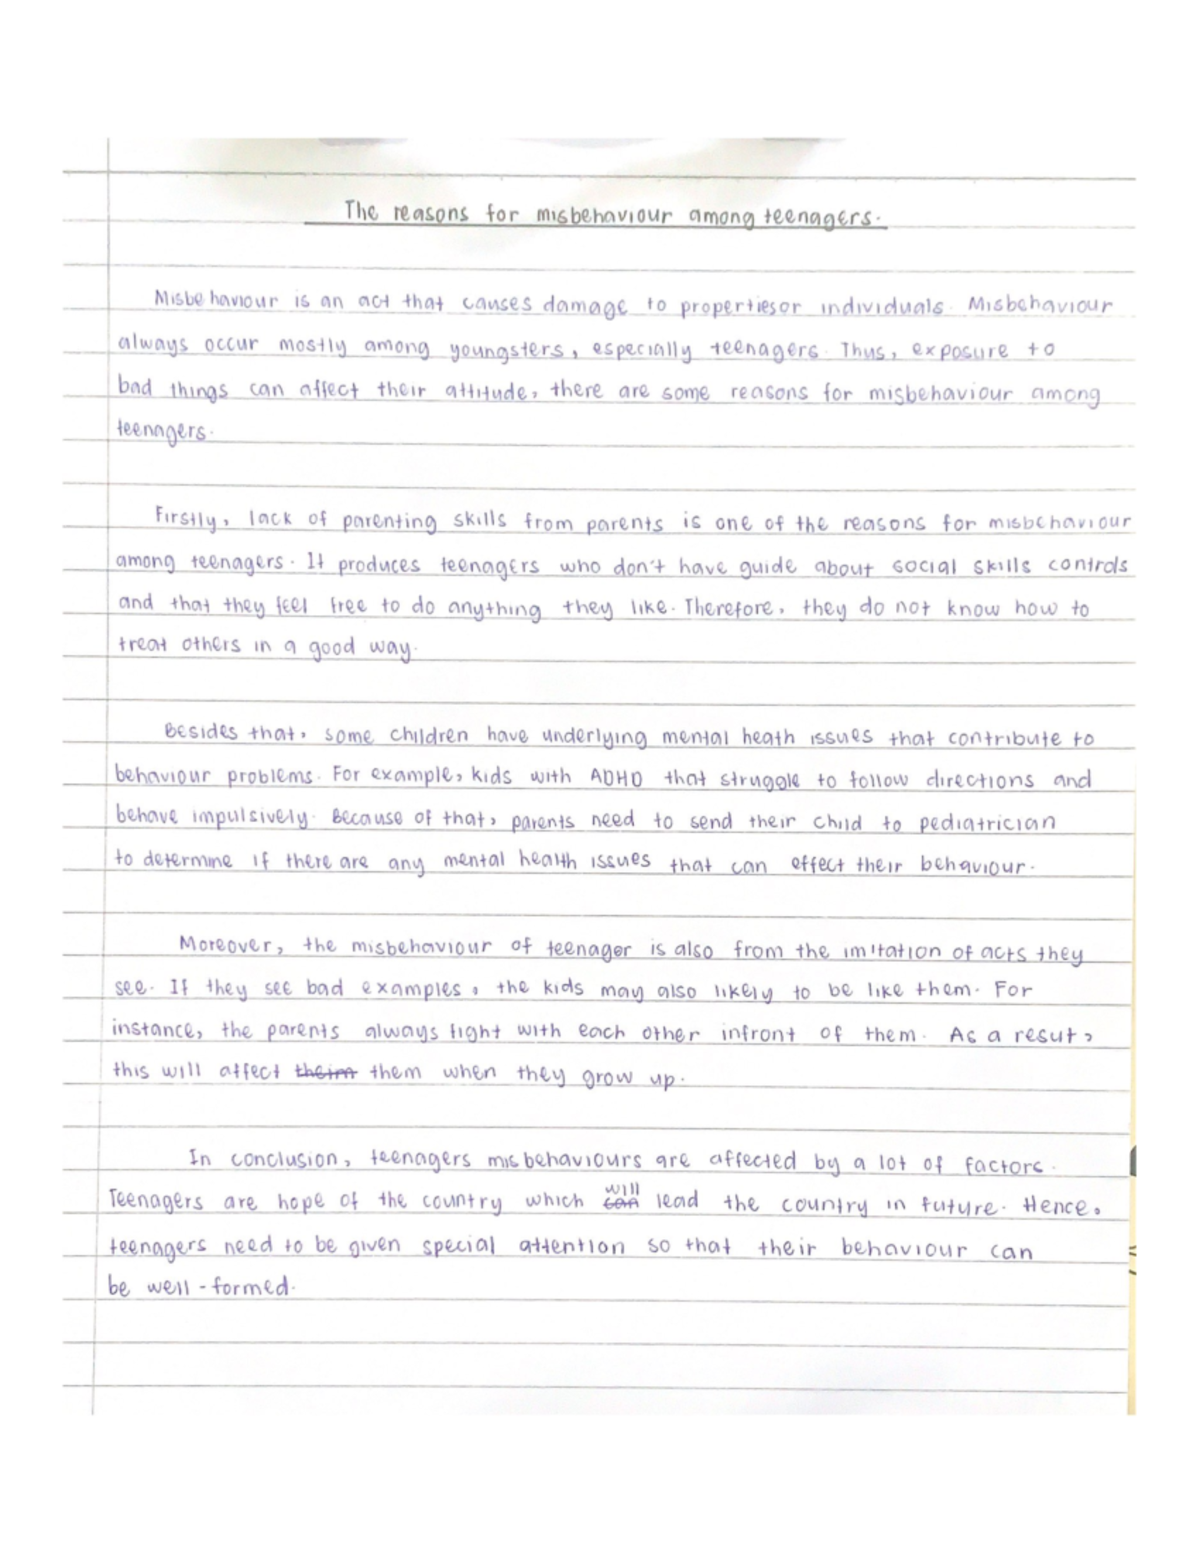 The reasons for misbehaviour among teenagers.
Misbehaviour is an act that causes damage to propertiesor individuals. Misbehaviour
always occur mostly among youngsters, especially teenagers. Thus, exposure to
bad things can affect their attitude, there are some reasons for misbehaviour among
teenagers.
Firstly, lack of parenting skills from parents is one of the reasons for misbehaviour
among teenagers. It produces teenagers who don't have guide about social skills controls
and that they feel free to do anything they like. Therefore, they do not know how to
treat others in a good way.
Besides that, some children have underlying mental heath issues that contribute to
behaviour problems. For example, kids with ADHD that struggle to follow directions and
behave impulsively. Because of that, parents need to send their child to pediatrician
to determine if there are any mental health issues that can effect their behaviour.
Moreover, the misbehaviour of teenager is also from the imitation of acts they
see. If they see bad examples, the kids may also likely to be like them. For
instance, the parents always fight with each other infront of them. As a resut,
this will affect theirm them when they grow up.
In conclusion, teenagers misbehaviours are affected by a lot of factors.
Teenagers are hope of the country which can will lead the country in future. Hence,
teenagers need to be given special attention so that their behaviour can
be well-formed.